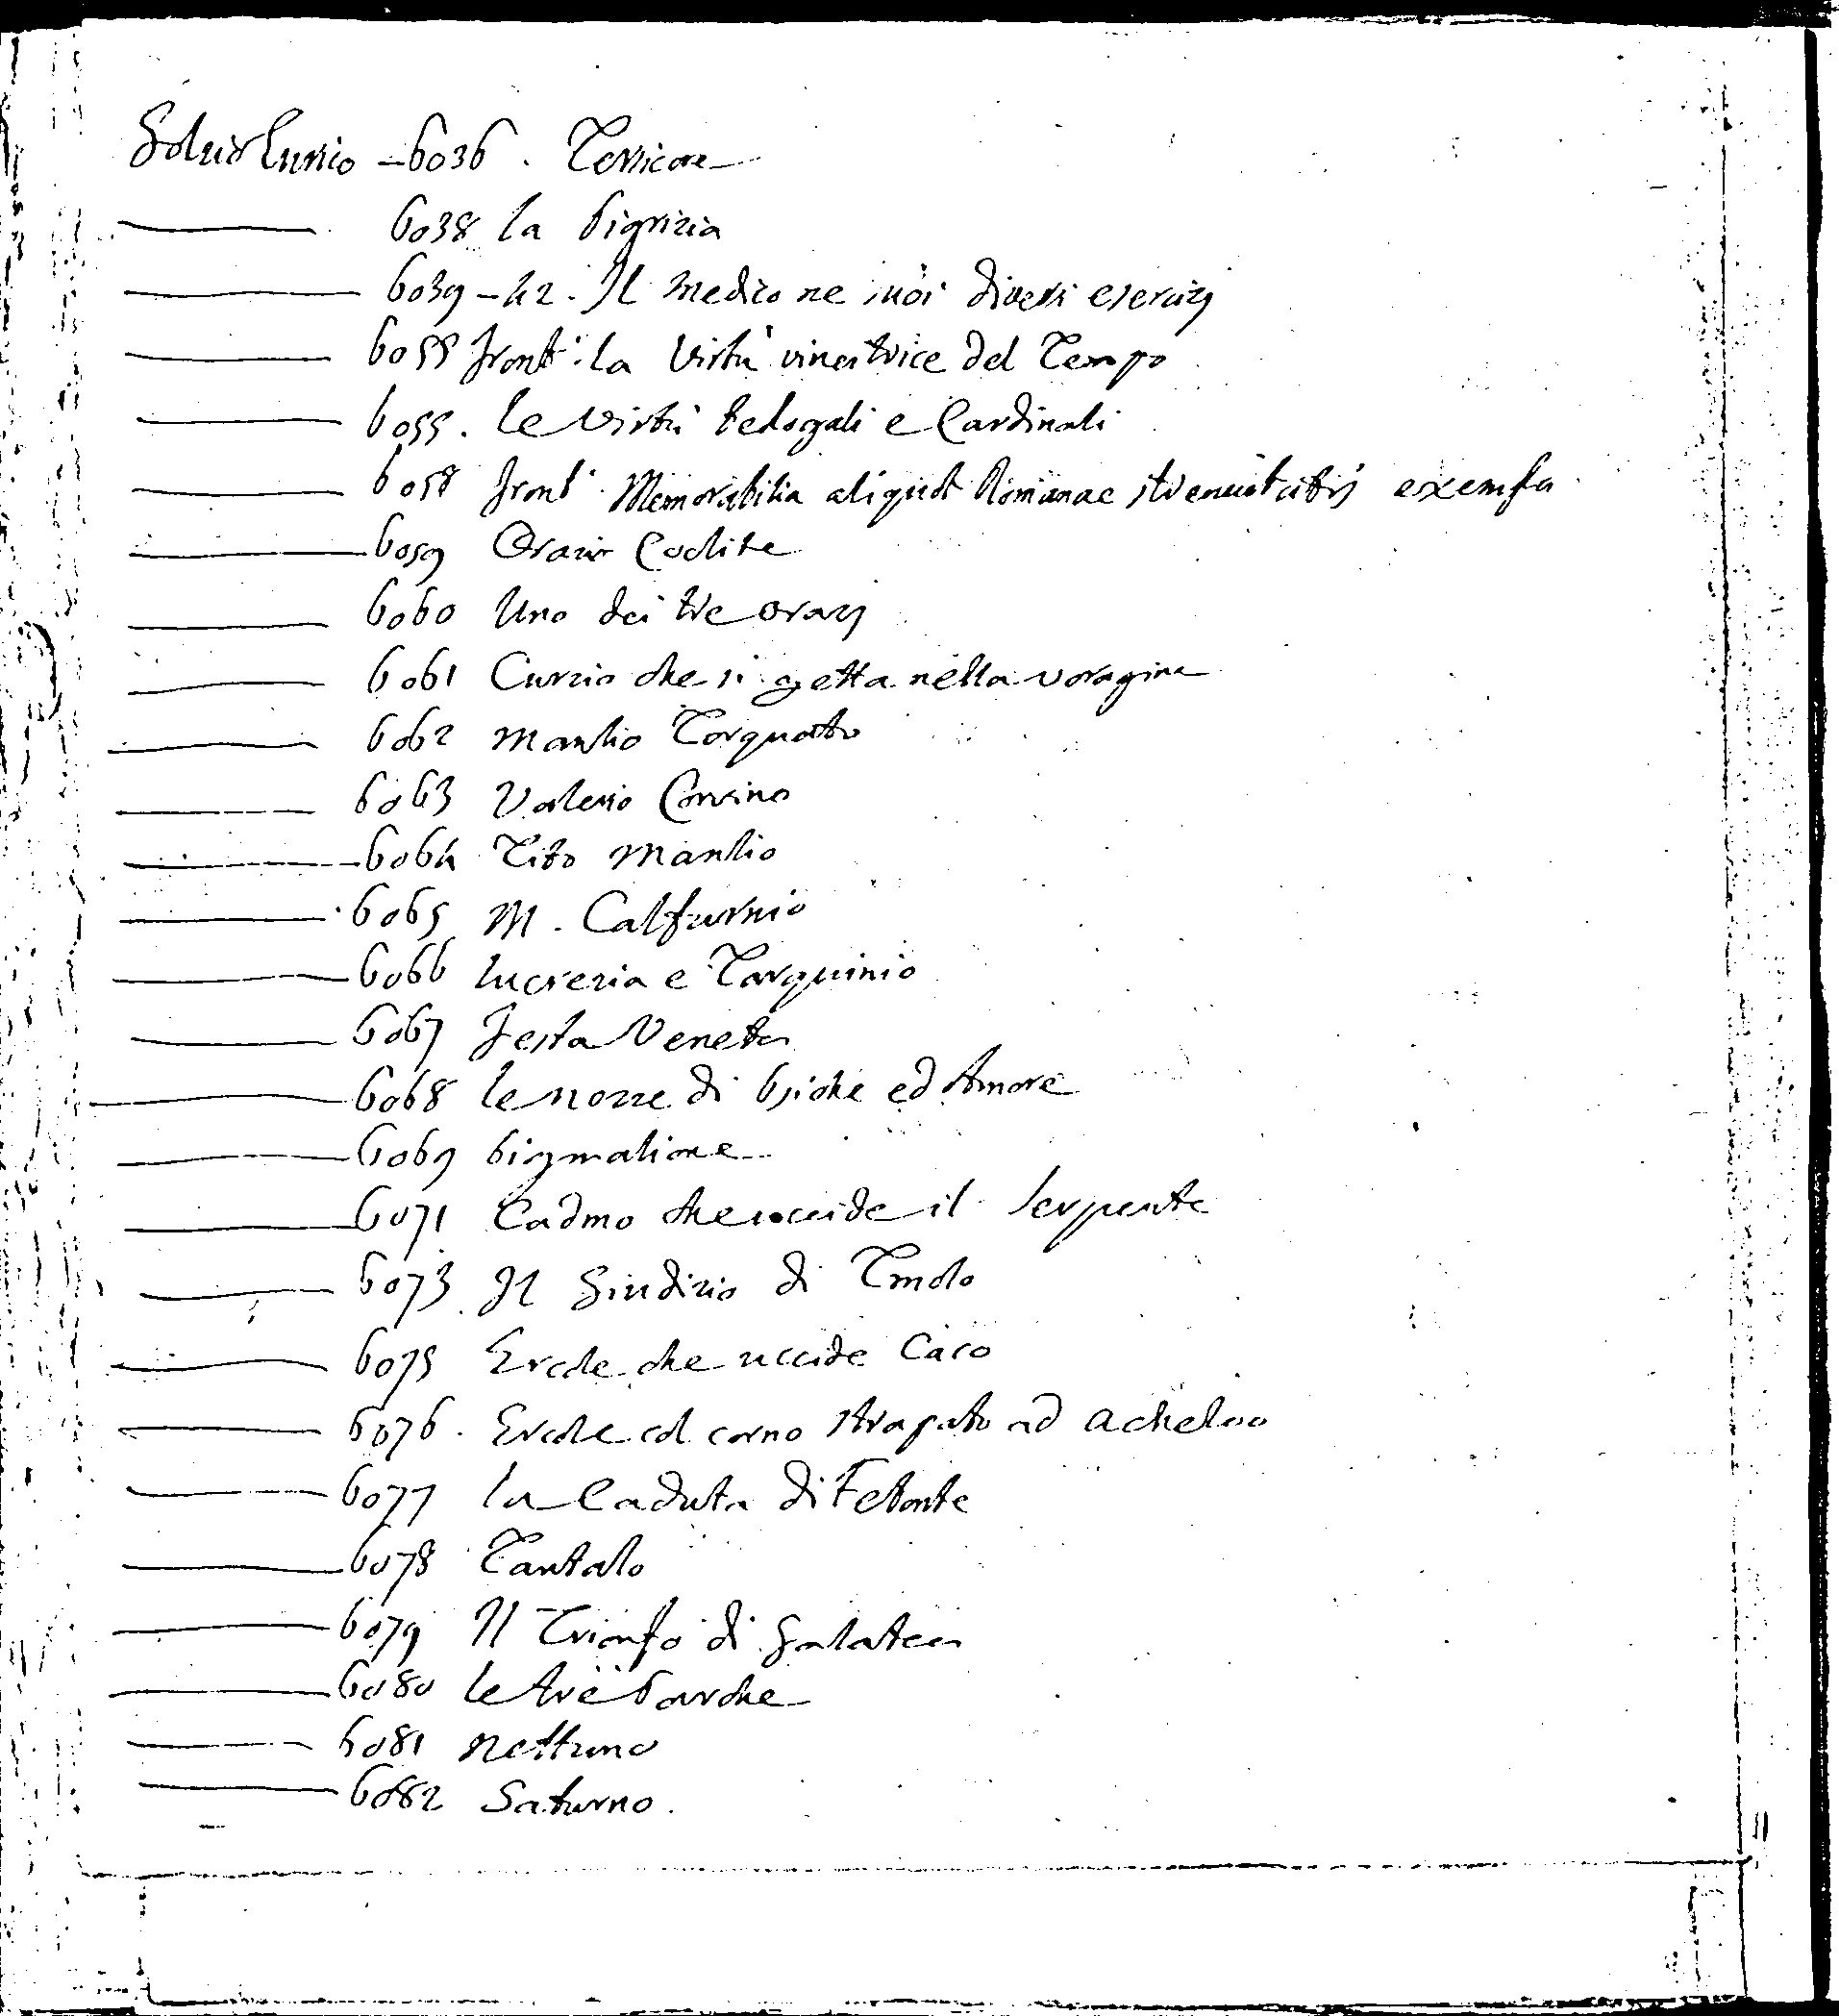 Goltzio Enrico - 6036. Tersicore
6038 la Pigrizia
6039-42. Il Medico ne suoi diversi esercizj
6055 front: la Virtù vincitrice del Tempo
6055. le Virtù Teologali e Cardinali
6058 front: Memorabilia aliquot Romanae strenuitatis exempla
6059 Orazio Coclite
6060 Uno dei tre orazj
6061 Curzio che si getta nella voragine
6062 Manlio Torquato
6063 Valerio Corvino
6064 Tito Manlio
6065 M. Calfurnio
6066 lucrezia e Tarquinio
6067 Festa Veneta
6068 le nozze di Psiche ed Amore
6069 Pigmalione
6071 Cadmo che uccide il Serpente
6073 Il Giudizio di Tmolo
6075 Ercole che uccide Caco
6076. Ercole col corno strapato ad Acheloo
6077 la Caduta di Fetonte
6078 Tantalo
6079 Il Trionfo di Galatea
6080 le tre Parche
6081 Nettuno
6082 Saturno.